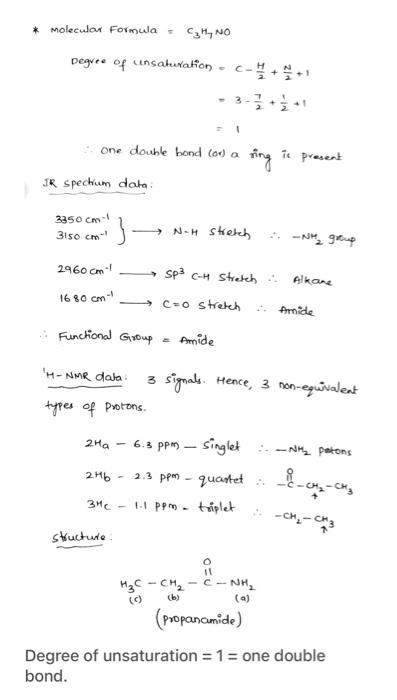 * Molecular Formula = C₃H₇NO
Degree of unsaturation = C - H/2 + N/2 + 1
= 3 - 7/2 + 1/2 + 1
= 1
∴ one double bond (or) a ring is present
IR spectrum data:
3350 cm⁻¹
3150 cm⁻¹ } → N-H stretch ∴ -NH₂ group
2960 cm⁻¹ → sp³ C-H stretch ∴ Alkane
1680 cm⁻¹ → C=O stretch ∴ Amide
∴ Functional Group = Amide
¹H-NMR data: 3 signals. Hence, 3 non-equivalent
types of protons.
2Ha - 6.3 ppm - singlet ∴ -NH₂ protons
2Hb - 2.3 ppm - quartet ∴ -C(=O)-CH₂-CH₃
3Hc - 1.1 ppm - triplet ∴ -CH₂-CH₃
structure:
O
||
H₃C - CH₂ - C - NH₂
(c) (b) (a)
(propanamide)
Degree of unsaturation = 1 = one double
bond.